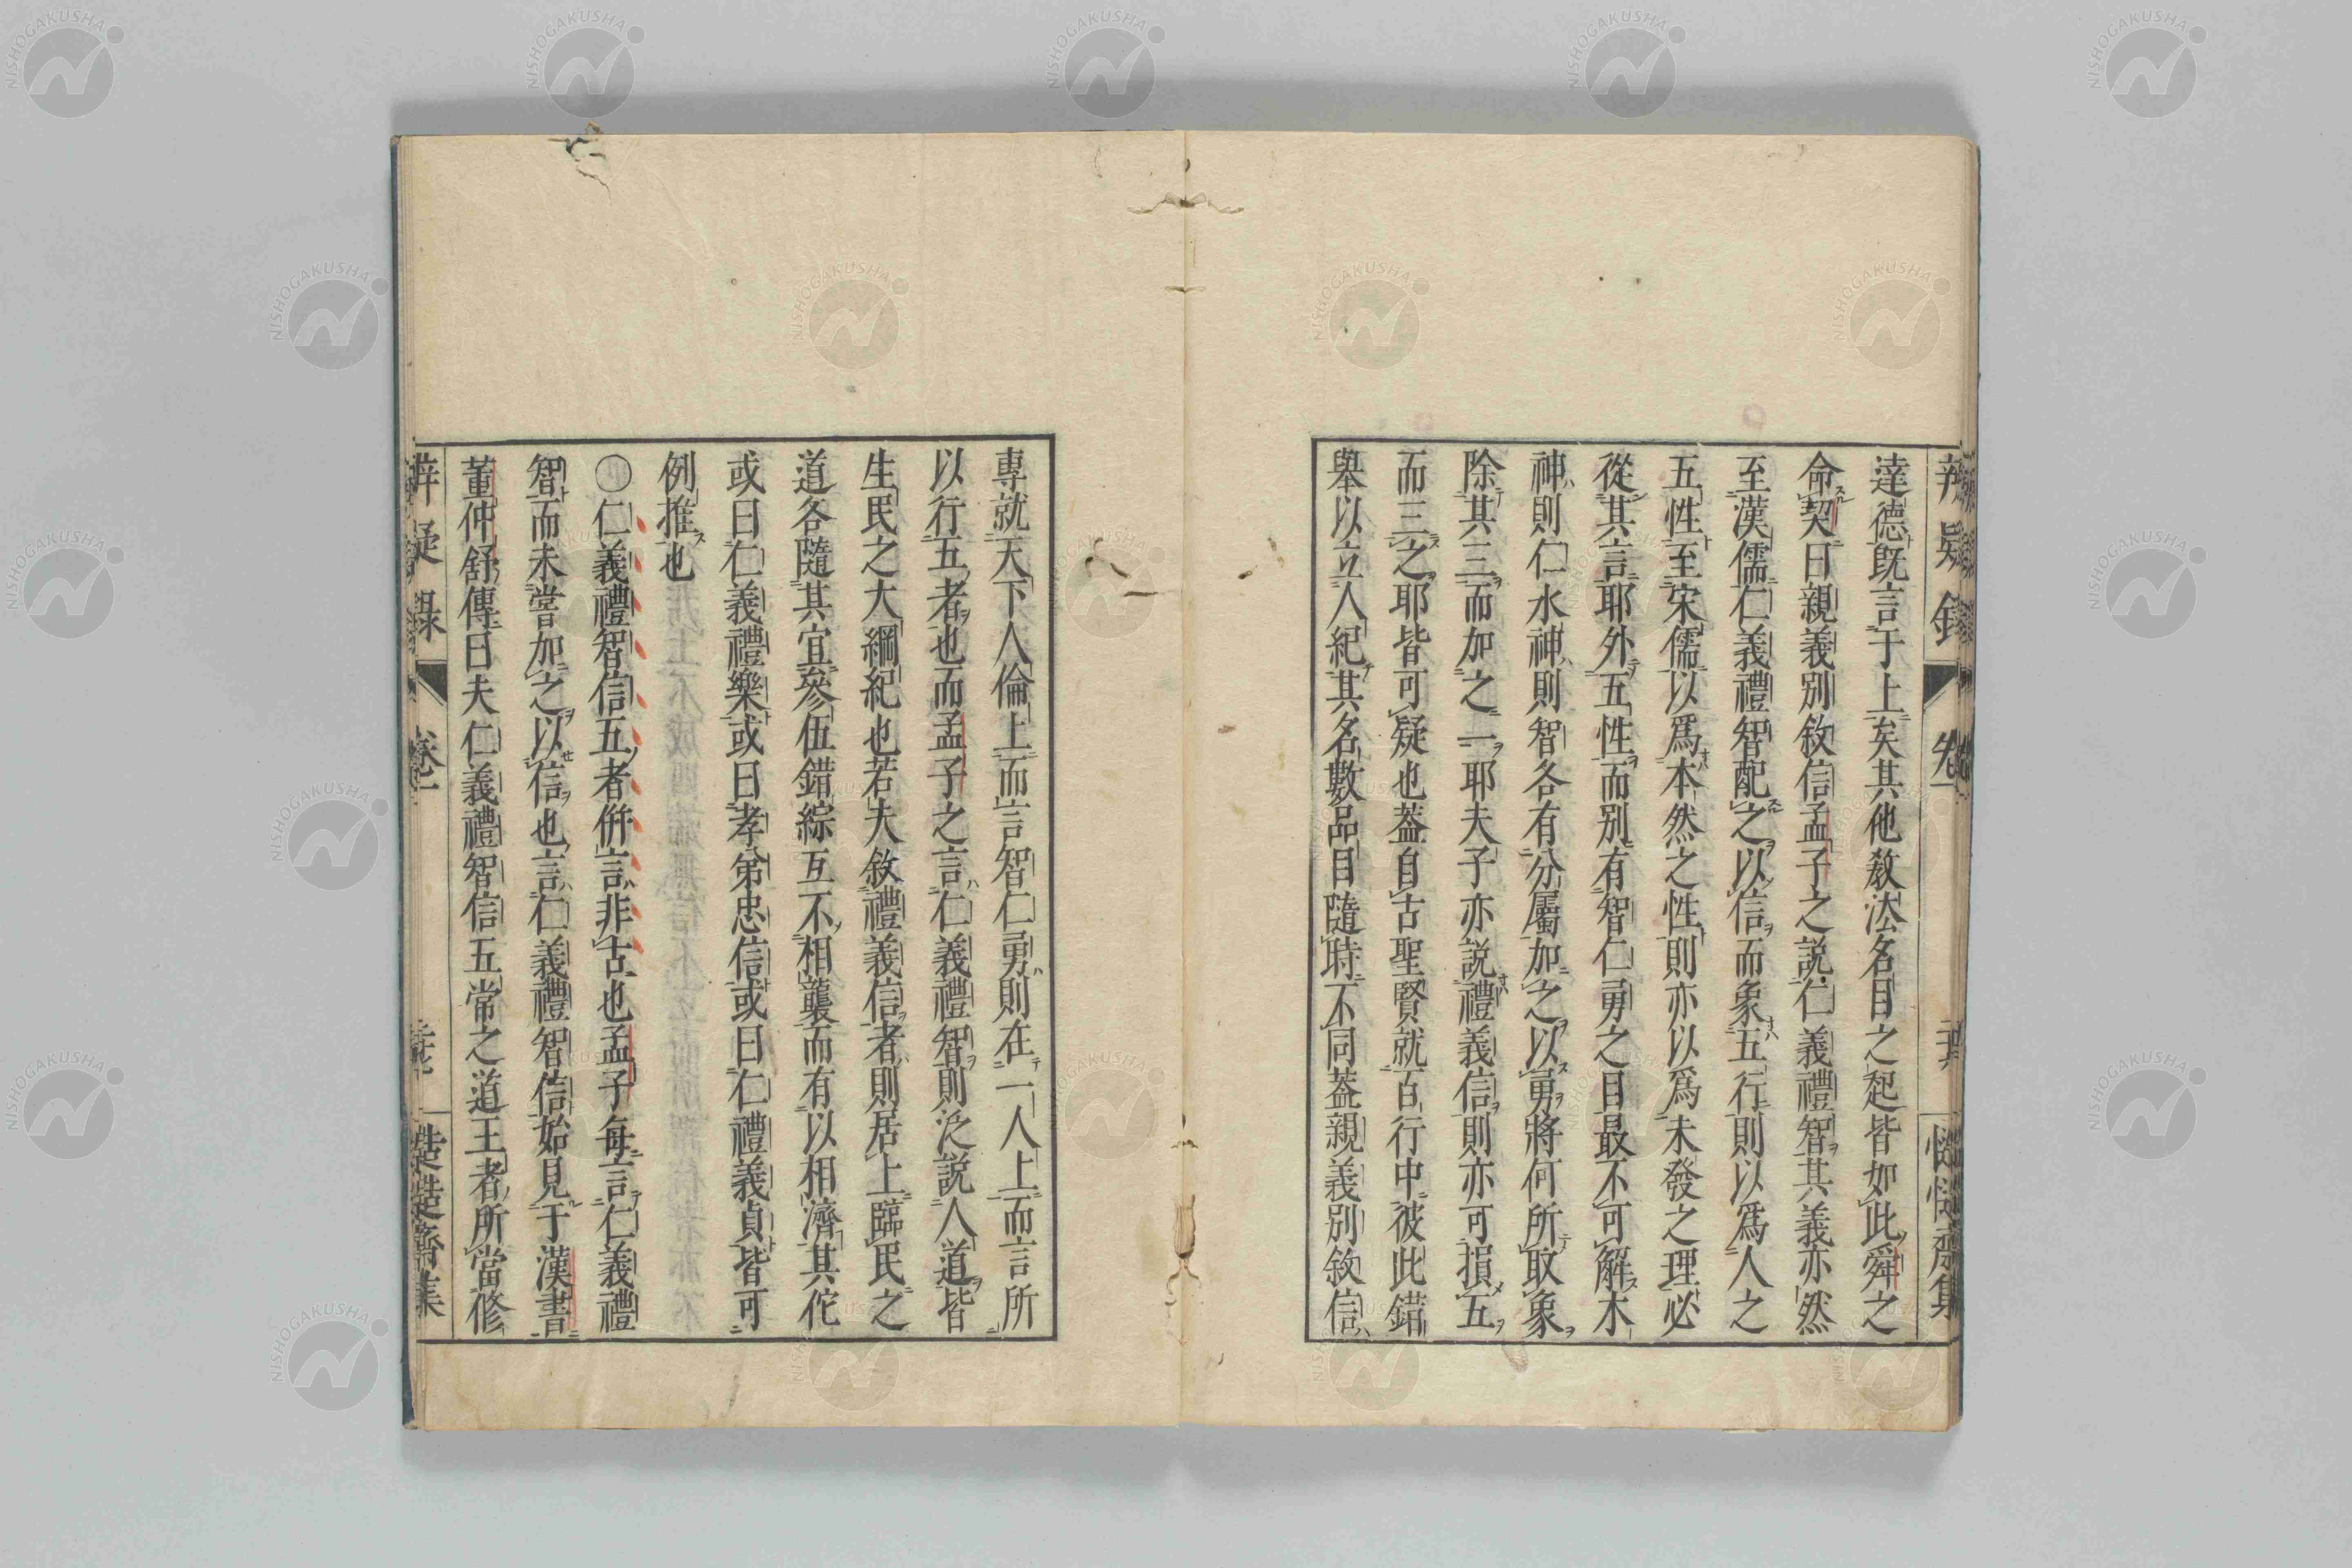 達德既言于上矣其他敎法名目之起皆如此舜之
命契曰親義別敘信孟子之説仁義禮智其義亦然
至漢儒仁義禮智配之以信而象五行則以爲人之
五性至宋儒以爲本然之性則亦以爲未發之理必
從其言耶外五性而別有智仁勇之目最不可解木
神則仁水神則智各有分屬加之以勇將何所取象
除其三而加之一耶夫子亦説禮義信則亦可損五
而三之耶皆可疑也蓋自古聖賢就百行中彼此錯
舉以立人紀其名數品目隨時不同蓋親義別敘信
專就天下人倫上而言智仁勇則在一人上而言所
以行五者也而孟子之言仁義禮智則泛説人道皆
生民之大綱紀也若夫敘禮義信者則居上臨民之
道各隨其宜參伍錯綜互不相襲而有以相濟其佗
或曰仁義禮樂或曰孝弟忠信或曰仁禮義貞皆可
例推也
〇仁義禮智信五者併言非古也孟子每言仁義禮
智而未嘗加之以信也言仁義禮智信始見于漢書
董仲舒傳曰夫仁義禮智信五常之道王者所當修
辨疑錄
卷一
慥慥齋集
NISHOGAKUSHA